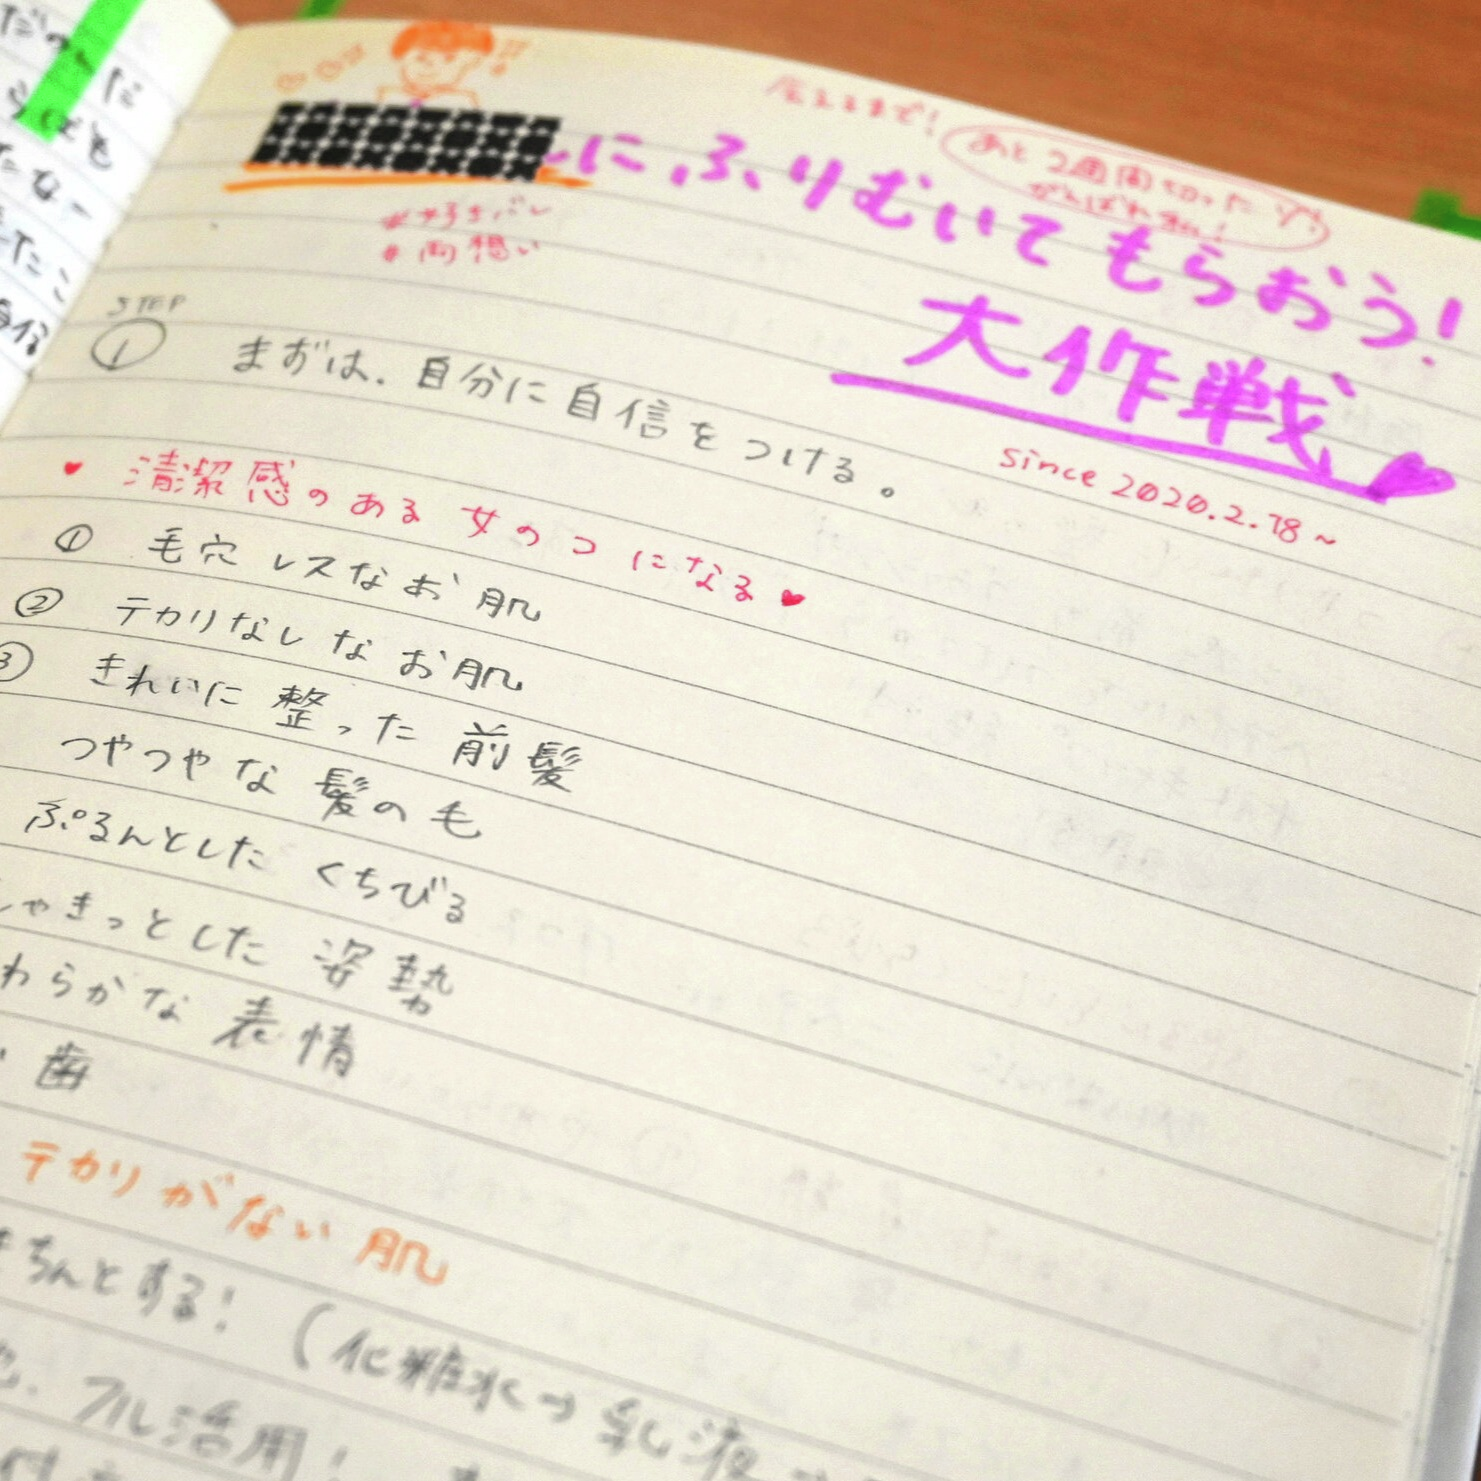 会えるまで!
あと2週間切ったぞ!
がんばれ私!
にふりむいてもらおう!
大作戦
#好きバレ
#両想い
since 2020.2.18~
STEP
① まずは、自分に自信をつける。
♥ 清潔感のある女のコになる♥
① 毛穴レスなお肌
② テカリなしなお肌
③ きれいに整った前髪
つやつやな髪の毛
ぷるんとしたくちびる
しゃきっとした姿勢
わらかな表情
歯
テカリがない肌
きちんとする! (化粧水→乳液
フル活用!